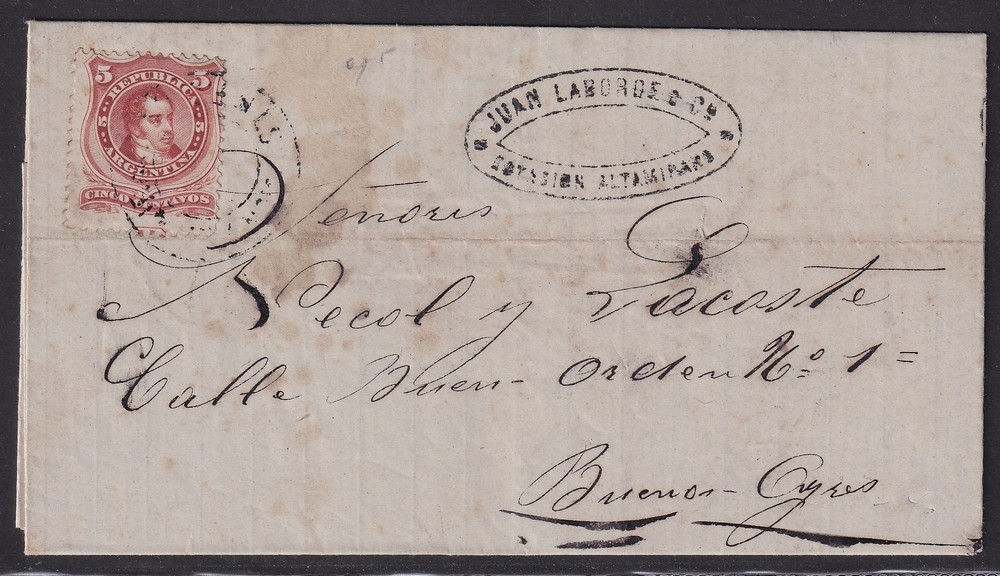 5 5
REPUBLICA
5 5
ARGENTINA
CINCO CENTAVOS
JUAN LABORDE & Cª
ESTASION ALTAMIRANO
Señores
Necol y Lacoste
Calle Buen-Orden Nº 1=
Buenos-Ayres